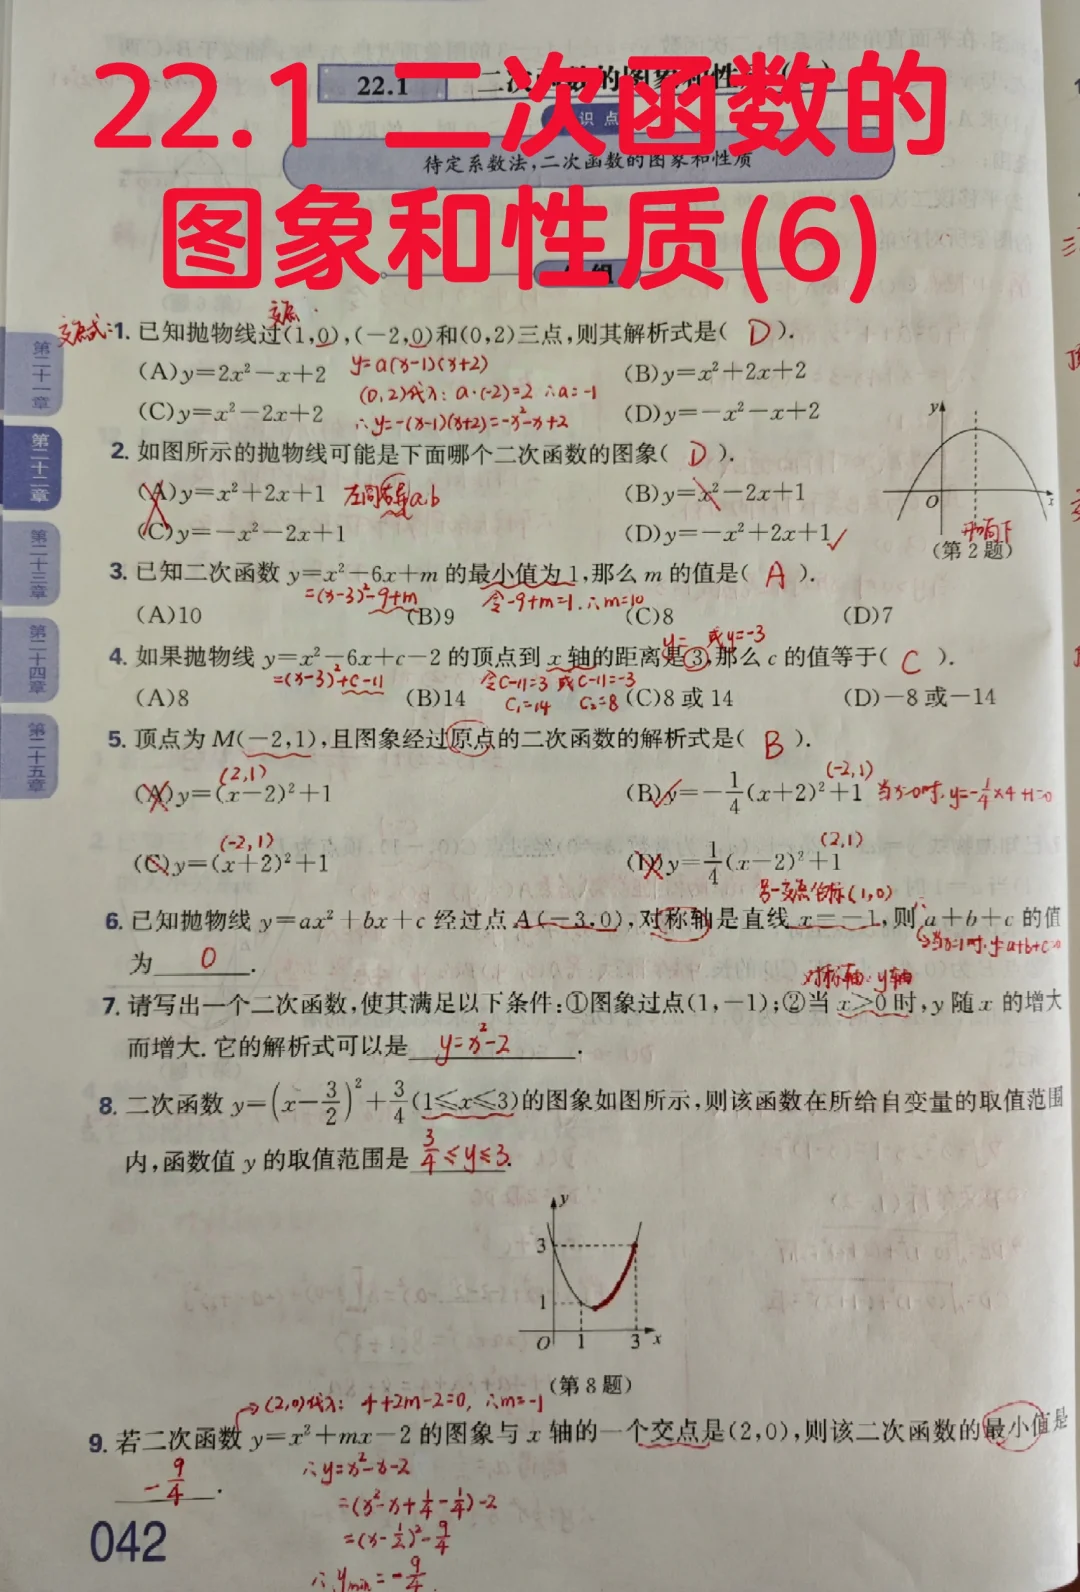 22.1 二次函数的
图象和性质(6)
22.1
识点
待定系数法,二次函数的图象和性质
组
第二十一章
第二十二章
第二十三章
第二十四章
第二十五章
交点
交点式:1. 已知抛物线过(1,0),(-2,0)和(0,2)三点,则其解析式是( D ).
(A)y=2x²-x+2 y=a(x-1)(x+2) (B)y=x²+2x+2
(0,2)代入: a·(-2)=2 ∴a=-1
(C)y=x²-2x+2 ∴y=-(x-1)(x+2)=-x²-x+2 (D)y=-x²-x+2
2. 如图所示的抛物线可能是下面哪个二次函数的图象( D ).
(A)y=x²+2x+1 左同右异a,b (B)y=x²-2x+1
(C)y=-x²-2x+1 (D)y=-x²+2x+1✓
y
O
x
开口向下
(第2题)
3. 已知二次函数 y=x²-6x+m 的最小值为1,那么 m 的值是( A ).
=(x-3)²-9+m 令-9+m=1.∴m=10
(A)10 (B)9 (C)8 (D)7
y= 或y=-3
4. 如果抛物线 y=x²-6x+c-2 的顶点到 x 轴的距离是3,那么 c 的值等于( C ).
=(x-3)²+c-11 令c-11=3 或c-11=-3
c₁=14 c₂=8
(A)8 (B)14 (C)8 或 14 (D)-8 或-14
5. 顶点为 M(-2,1),且图象经过原点的二次函数的解析式是( B ).
(2,1) (-2,1)
(A)y=(x-2)²+1 (B)✓y=-1/4(x+2)²+1 当x=0时,y=-1/4×4+1=0
(-2,1) (2,1)
(C)y=(x+2)²+1 (D)y=1/4(x-2)²+1
另一交点坐标(1,0)
6. 已知抛物线 y=ax²+bx+c 经过点 A(-3,0),对称轴是直线 x=-1,则 a+b+c 的值
当x=1时,y=a+b+c=0
为 0 .
对称轴:y轴
7. 请写出一个二次函数,使其满足以下条件:①图象过点(1,-1);②当 x>0 时,y 随 x 的增大
而增大. 它的解析式可以是 y=x²-2 .
8. 二次函数 y=(x-3/2)²+3/4(1≤x≤3)的图象如图所示,则该函数在所给自变量的取值范围
内,函数值 y 的取值范围是 3/4≤y≤3.
y
3
1
O 1 3 x
(第8题)
(2,0)代入: 4+2m-2=0, ∴m=-1
9. 若二次函数 y=x²+mx-2 的图象与 x 轴的一个交点是(2,0),则该二次函数的最小值是
-9/4 .
∴y=x²-x-2
=(x²-x+1/4-1/4)-2
=(x-1/2)²-9/4
∴ymin=-9/4.
042